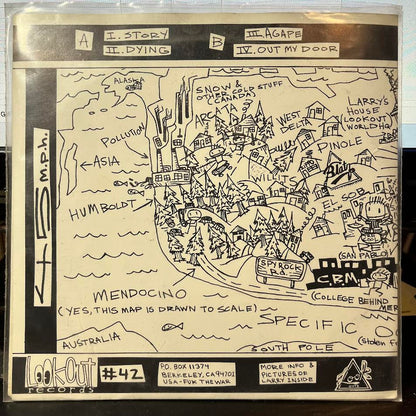 A I. STORY
II. DYING
B III. AGAPE
IV. OUT MY DOOR
45 m.p.h.
ALASKA
SNOW &
OTHER COLD STUFF
(CANADA)
POLLUTION
ARC
WEST
DELTA
LARRY'S
HOUSE
LOOKOUT
WORLD HQ
PINOLE
ASIA
HUMBOLDT
WILLITS
EL SOB.
(SAN PABLO)
SPYROCK
RD.
C.R.M.
(COLLEGE BEHIND
MER
MENDOCINO
(YES, THIS MAP IS DRAWN TO SCALE)
SPECIFIC O
(Stolen F
AUSTRALIA
SOUTH POLE
LookOut
records
#42
P.O. BOX 11374
BERKELEY, CA 94701
USA-FUK THE WAR
MORE INFO &
PICTURES OF
LARRY INSIDE